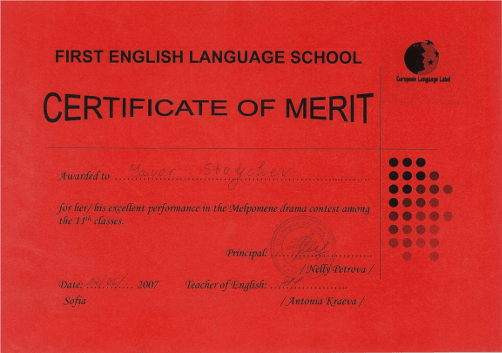 FIRST ENGLISH LANGUAGE SCHOOL
European Language Label
CERTIFICATE OF MERIT
Awarded to ...Yavor Stoychev...
for her/ his excellent performance in the Melpomene drama contest among
the 11th classes.
Principal: ...
/ Nelly Petrova /
Date: ... 2007 Teacher of English: ...
Sofia / Antonia Kraeva /